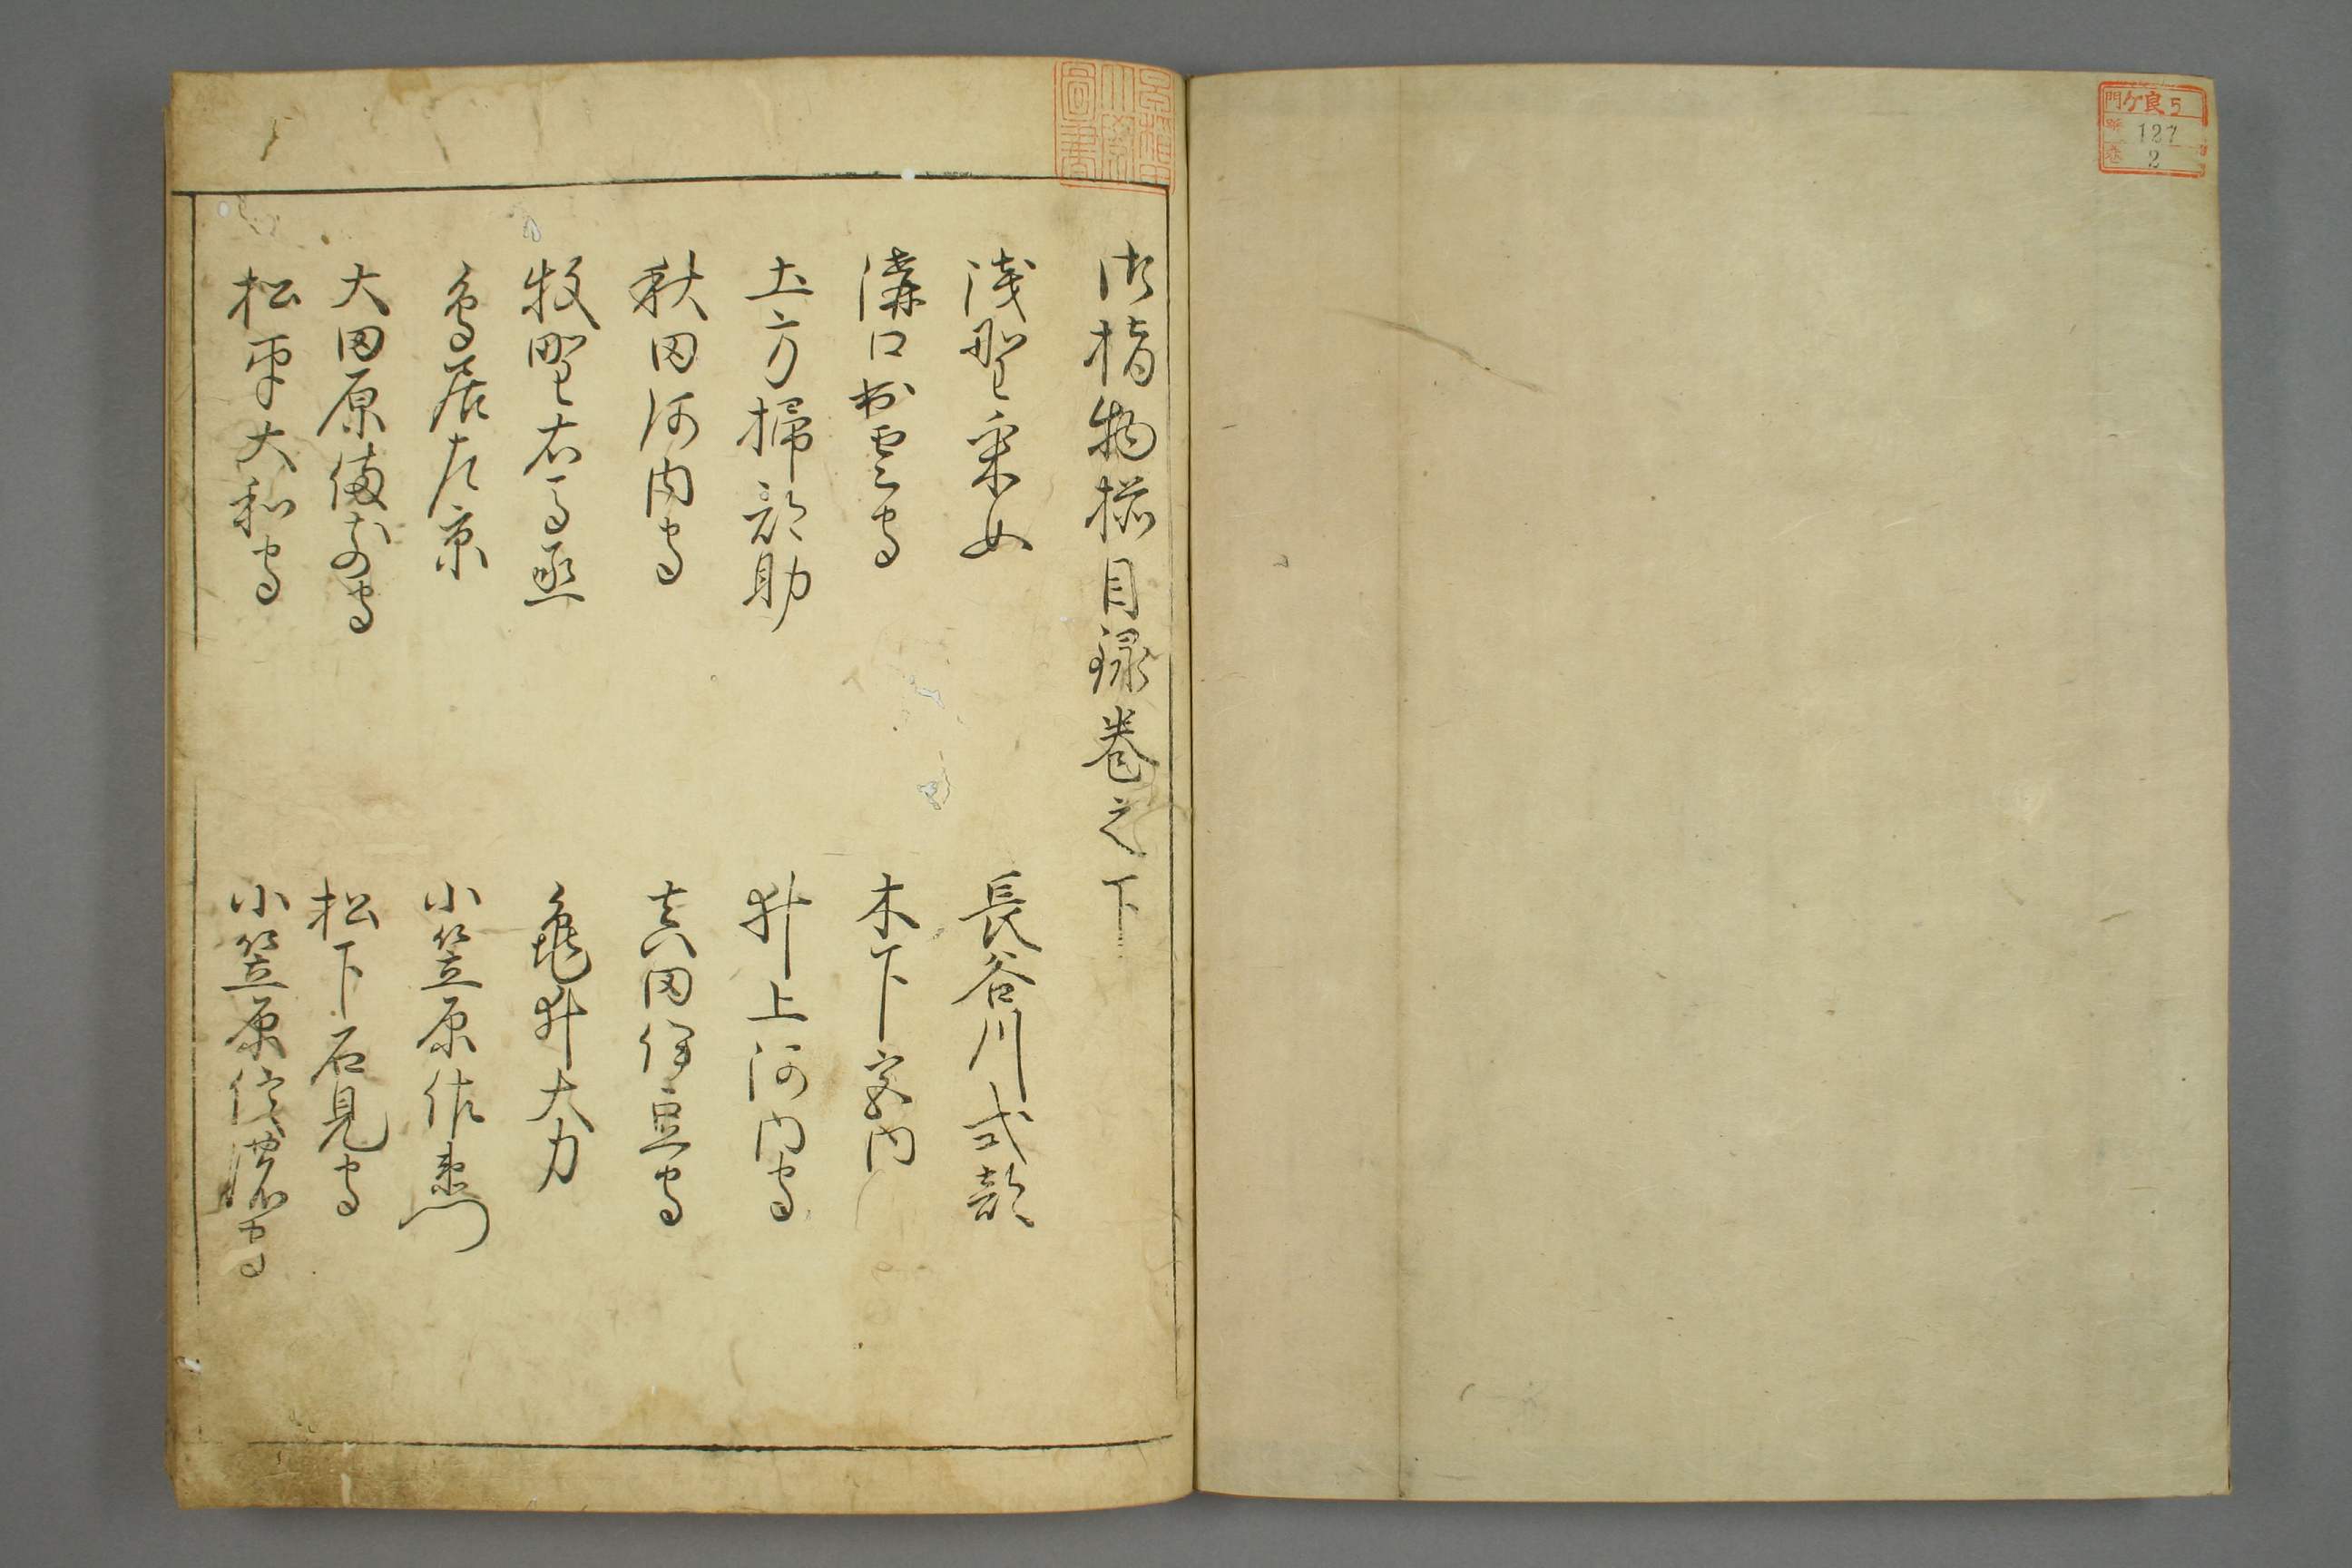 御指物揃目録巻之下
浅野采女
長谷川式部
溝口出雲守
木下宮内
土方掃部助
井上河内守
秋田河内守
真田伊豆守
牧野右馬丞
亀井大力
鳥居左京
小笠原作衛門
大田原備前守
松下石見守
松平大和守
小笠原信濃守
門ケ良5
號 127
巻 2